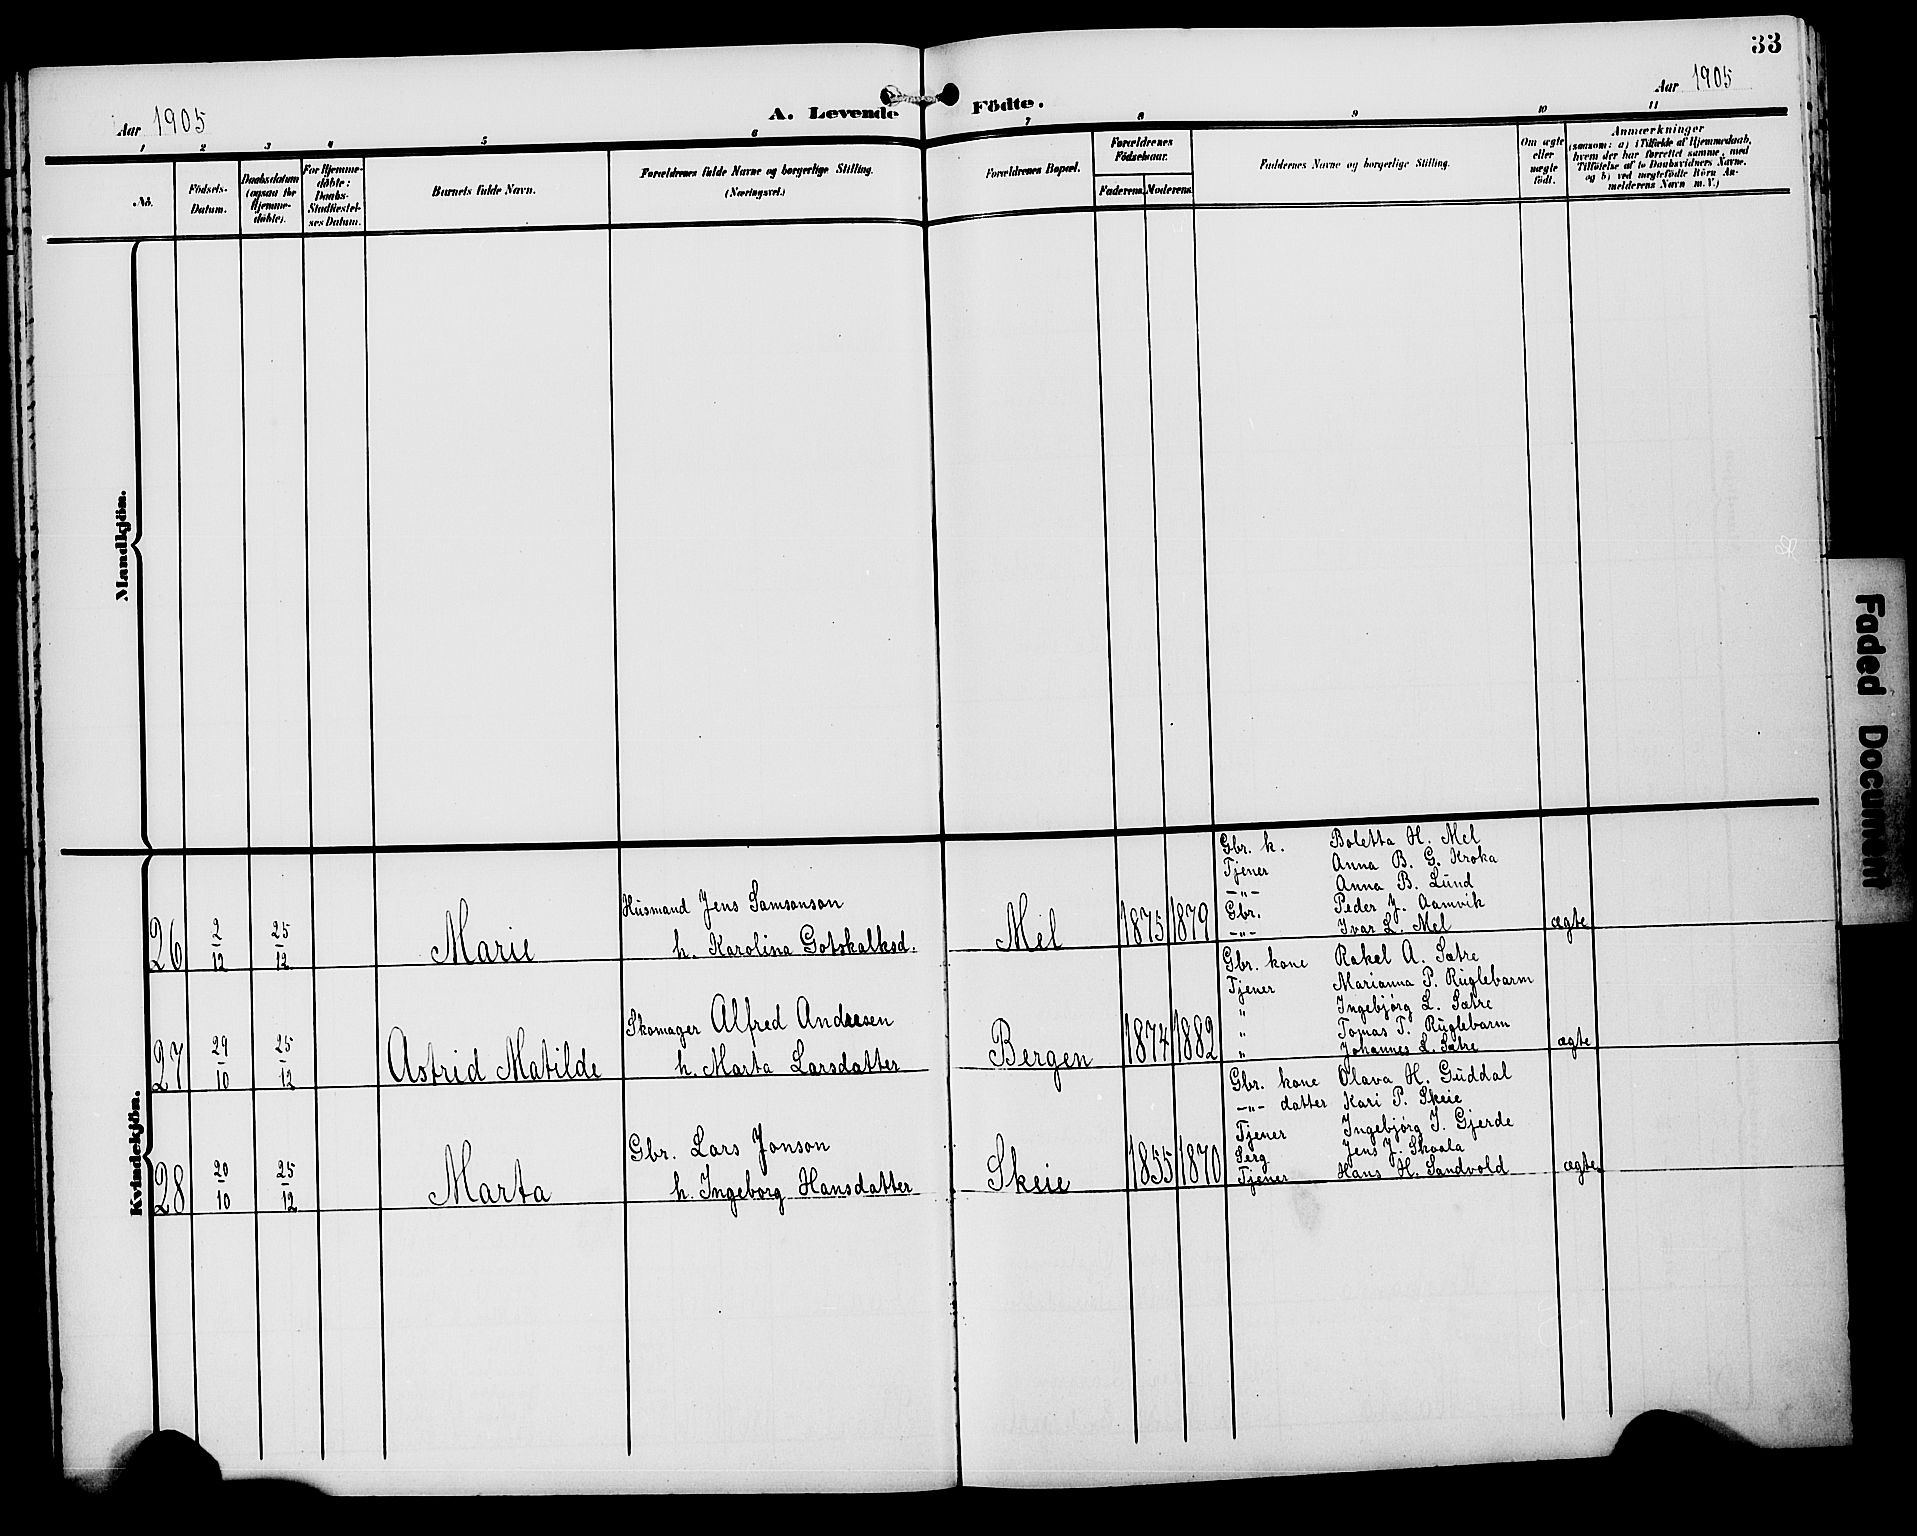 33
Aar 1905
A. Levende Födte.
Aar 1905
1 2 3 4 5 6 7 8 9 10 11
No.
Födsels-
Datum.
Daabsdatum
(ogsaa for
Hjemme-
döbte).
For Hjemme-
döbte:
Daabs-
Stadfæstel-
ses Datum.
Barnets fulde Navn.
Forældrenes fulde Navne og borgerlige Stilling.
(Næringsvei.)
Forældrenes Bopæl.
Forældrenes
Födselsaar.
Faderens. Moderens.
Faddernes Navne og borgerlige Stilling.
Om ægte
eller
uægte
födt.
Anmærkninger
(saasom: a) i Tilfælde af Hjemmedaab,
hvem der har forrettet samme, med
Tilföielse af to Daabsvidners Navne,
og b) ved uægtefödte Börn An-
melderens Navn m. V.)
Mandkjön.
Kvindekjön.
26
2/12
25/12
Marie
Husmand Jens Samsonson
h. Karolina Gotskalksd.
Mel
1875 1879
Gbr. k. Boletta H. Mel
Tjener Anna B. G. Kroka
-"- Anna B. Lund
Gbr. Peder J. Aamvik
-"- Ivar L. Mel
ægte
27
29/10
25/12
Astrid Matilde
Skomager Alfred Andresen
h. Marta Larsdatter
Bergen
1874 1882
Gbr. kone Rakel A. Sætre
Tjener Marianna P. Ruglebarm
" Ingebjørg L. Sætre
" Tomas T. Ruglebarm
" Johannes L. Sætre
ægte
28
20/10
25/12
Marta
Gbr. Lars Jonson
h. Ingeborg Hansdatter
Skeie
1855 1870
Gbr. kone Olava H. Guddal
-"- datter Kari P. Skeie
Tjener Ingebjørg I. Gjerde
Serg Jens J. Skaala
Tjener Hans H. Sandvold
ægte
Faded Document